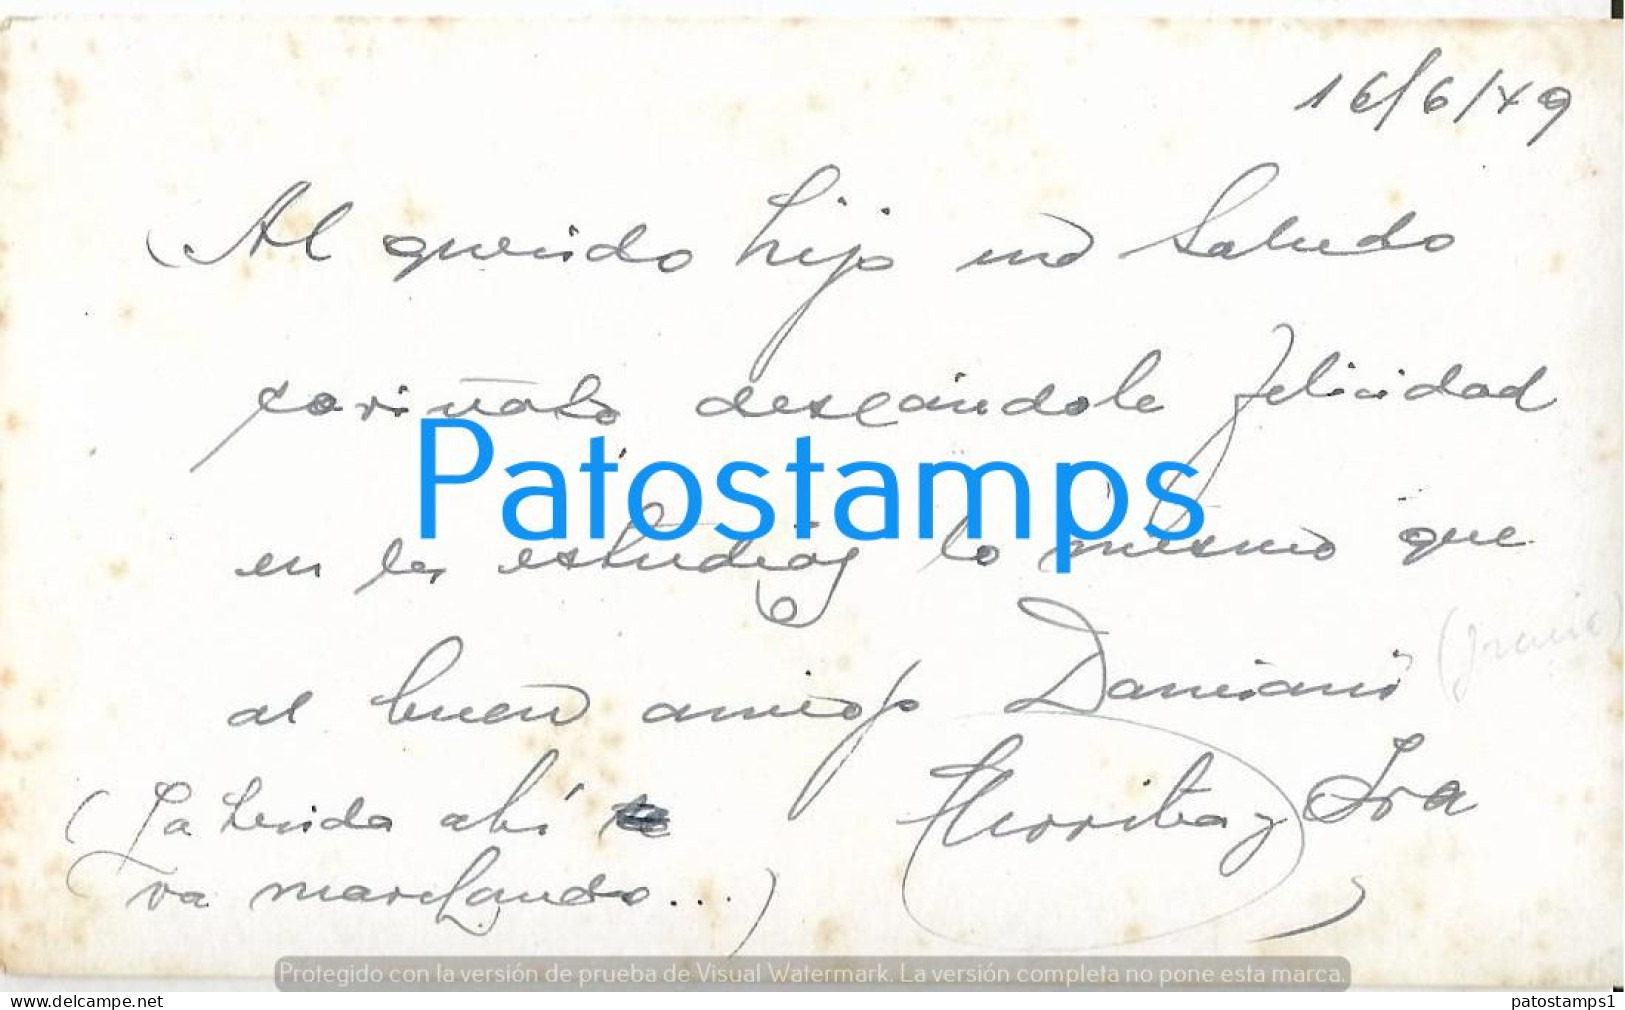 16/6/49
Al querido hijo un saludo
cariñoso deseándole felicidad
Patostamps
en los estudios lo mismo que
al buen amigo Damiani
(La tienda ahí
va marchando...)
y Sra
Protegido con la versión de prueba de Visual Watermark. La versión completa no pone esta marca.
www.delcampe.net
patostamps1